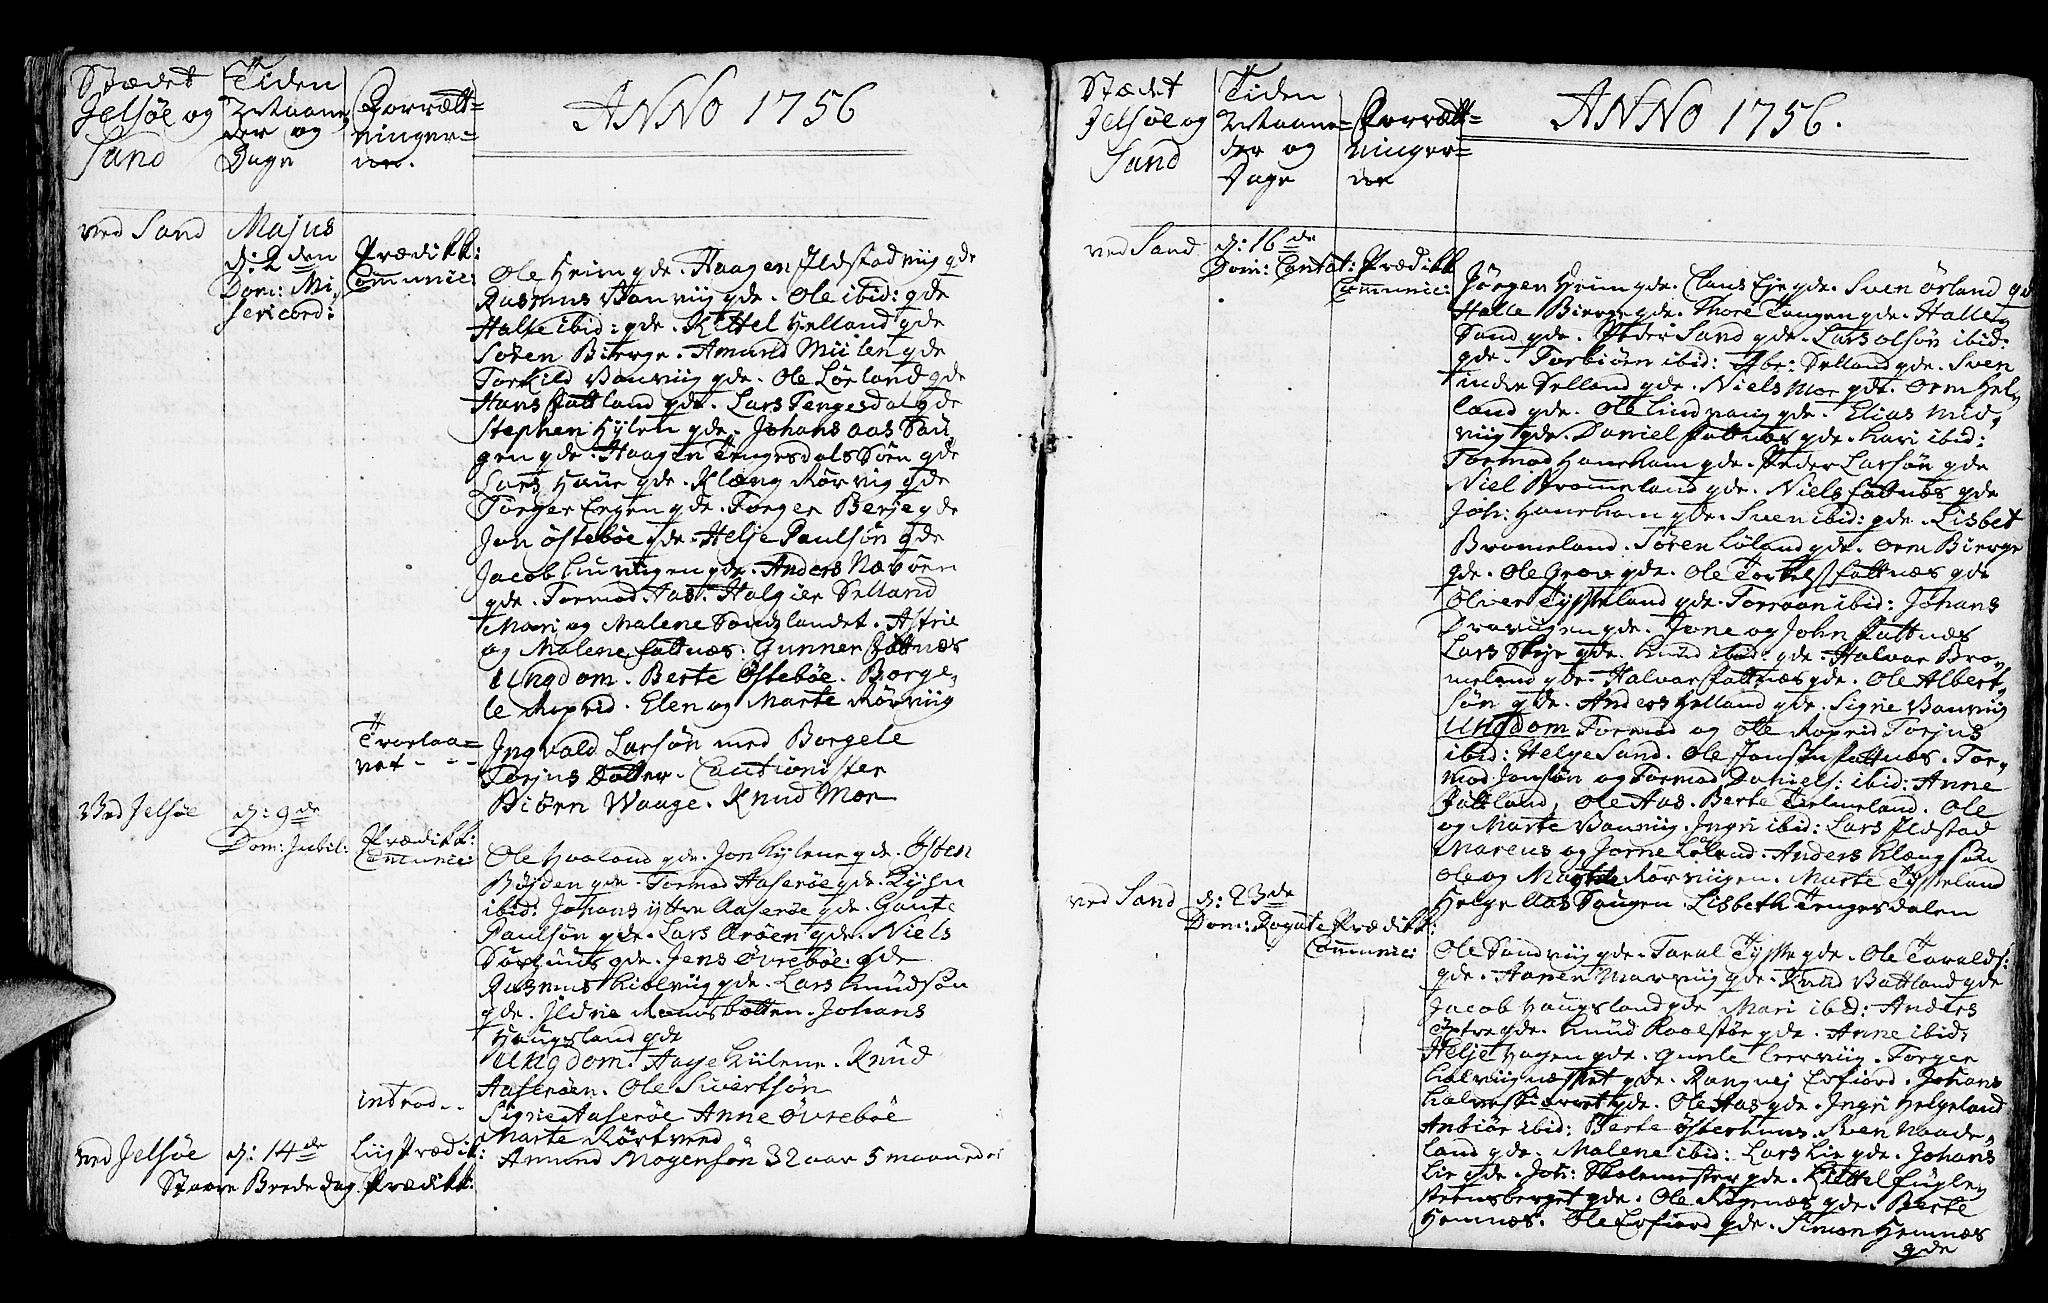 Stædet
Jelsøe og
Sand
Tiden
Maane,
der og
Dage
Forrætt=
ninger=
ne.
ANNO 1756
ved Sand
Majus
d: 2den
Dom: Mi,
sericord:
Prædikk:
Comunic:
Ole Heim gde. Haagen Ildstad viig gde
Rasmus Vanviig gde. Ole ibid: gde
Halle ibid: gde. Kittel Helland gde
Sören Bierge. Amund Müilen gde
Torkild Vanviig gde. Ole Lörland gde
Hans Fattland gde. Lars Tengesdal gde
Stephen Hylen gde. Johans Aas Sau
gen gde. Haagen Tengesdals Sön gde
Lars Haue gde. Klæng Rörviig gde
Torger Engen gde. Torger Berje gde
Jon Östeböe gde. Helje Paulsön gde
Jacob gde. Anders Næsöen
gde. Tormod Aas. Halgier Selland
Mari og Malene Sandslandet. Astrie
og Malene Fattnæs. Gunner Fattnæs
Ungdom. Berte Östeböe. Borge,
le Roprid. Elen og Marte Rörviig
Troelaa=
vet - - -
Ingvald Larsön med Borgele
Torjus Dotter. Cautionister
Biörn Waage. Knud Moe
Ved Jelsøe
d: 9de
Dom: Jubil:
Prædikk:
Comunic:
Ole Haaland gde. Jon Hylene gde. Östen
Böjden gde. Tormod Aaseröe gde. 
ibid: Johans yttre Aaseröe gde. Gaute
Paulsön gde. Lars Aröen gde. Niels
gde. Jens Övreböe gde
Rasmus gde. Lars Knudsön
gde. Ildrie Ramsbotten. Johans
Haugsland gde
Ungdom. Aage Hylene. Knud
Aaseröen. Ole Sivertsön
introd..
Signe Aaseröe Anne Övreböe
Marte Rörtved
ved Jelsøe
d: 14de
Liigprædik:
Amund Mogensön 32 aar 5 maaneder
Stoere Bededag. Prædikk:
Stædet
Jelsøe og
Sand
Tiden
Maane=
der og
Dage
Forrætt=
ninger=
ne
ANNO 1756.
ved Sand
d: 16de
Dom: Cantat:
Prædikk
Comunic:
Jörgen Heim gde. Claus Eje gde. Sven Örland gde
Halle Bierge gde. Thore Tangen gde. Halle
Sand gde. Peder Sand gde. Lars Olsön ibid:
gde. Torbiörn ibid: Abr: Selland gde. Sven
indre Selland gde. Niels Moe gde. Orm Hel,
land gde. Ole Lindvang gde. Elias Mid,
viig gde. Daniel Fattnæs gde. Kari ibid:
Tormod Honeham gde. Peder Larsön gde
Niel Brommeland gde. Niels Fattnæs gde
Joh: Honeham gde. Sven ibid: gde. Lisbet
Bromeland. Sören Löland gde. Orm Bierge
gde. Ole Grove gde. Ole Torkels: Fattnæs gde
Oliver Tysseland gde. Torraan ibid: Johans
Draviigen gde. Jone og John Fattnæs
Lars Skeje gde. Knud ibid: gde. Halvar Bro,
meland gde. Halvar Fattnæs gde. Ole Albert,
sön gde. Anders Helland gde. Signe Vanviig
Ungdom Tormod og Ole Roprid Torjus
ibid: Helge Sand. Ole Jonsön Fattnæs. Tor,
mod Jonsön og Tormod Daniels: ibid: Anne
Fattland, Ole Aas. Berte Tselmeland. Ole
og Marte Vanviig. Ingri ibid: Lars Ildstad
Marcus og Jorne Löland. Anders Klængsön
Ole og Magde Rörviigen. Marte Tysseland
Helge Aas Saugen. Lisbeth Tengesdalen
ved Sand
d: 23de
Dom: Rogate
Prædikk:
Comunic:
Ole Sandviig gde. Taral Tysse gde. Ole Taralds:
gde. Aanen Marviig gde. Knud Battland gde
Jacob Haugsland gde Mari ibid: Anders
gde. Knud Kaalstöe gde. Anne ibid:
Helje Hagen gde. Gunle Leerviig. Torger
Kalviignæsset gde. Rangvej Erfiord. Johans
Kalveskierret gde. Ole Aas gde. Ingri Helgeland
Anbiör ibid: Berte Österhuus. Sven Naade,
land gde. Malene ibid: Lars Lie gde. Johans
Lie gde. Joh: Skolemester gde. Kittel Fugle,
steensberget gde. Ole Rögenæs gde. Berte
Hemnæs. Ole Erfiord gde. Simon Hemnæs
gde